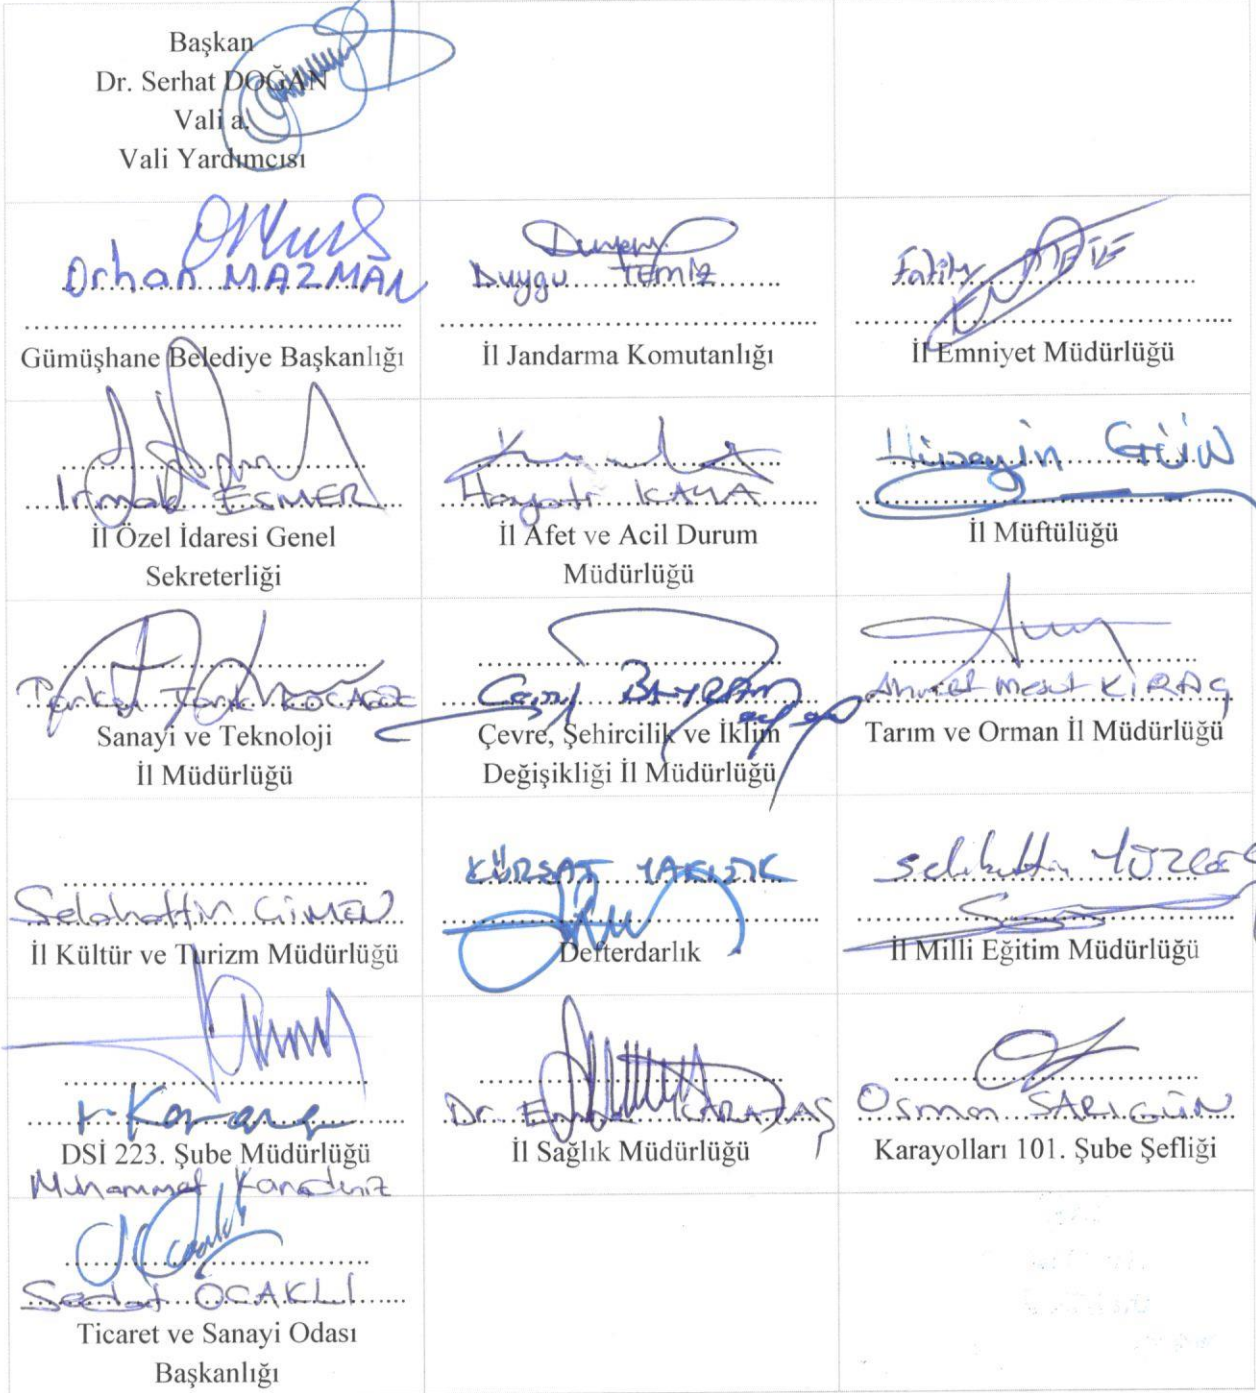 Başkan
Dr. Serhat DOĞAN
Vali a.
Vali Yardımcısı
Orhan MAZMAN
Gümüşhane Belediye Başkanlığı
Duygu TEMİZ
İl Jandarma Komutanlığı
Fatih
İl Emniyet Müdürlüğü
Irmak ESMER
İl Özel İdaresi Genel
Sekreterliği
Hayati KAYA
İl Afet ve Acil Durum
Müdürlüğü
Hüseyin GÜN
İl Müftülüğü
Sanayi ve Teknoloji
İl Müdürlüğü
BAYRAM
Çevre, Şehircilik ve İklim
Değişikliği İl Müdürlüğü
Ahmet Mesut KIRAÇ
Tarım ve Orman İl Müdürlüğü
Selahattin ÇİMEN
İl Kültür ve Turizm Müdürlüğü
KÜRŞAT
Defterdarlık
İl Milli Eğitim Müdürlüğü
DSİ 223. Şube Müdürlüğü
Muhammet Karadeniz
Dr. KARATAŞ
İl Sağlık Müdürlüğü
Osman SARIGÜN
Karayolları 101. Şube Şefliği
Sedat OCAKLI
Ticaret ve Sanayi Odası
Başkanlığı